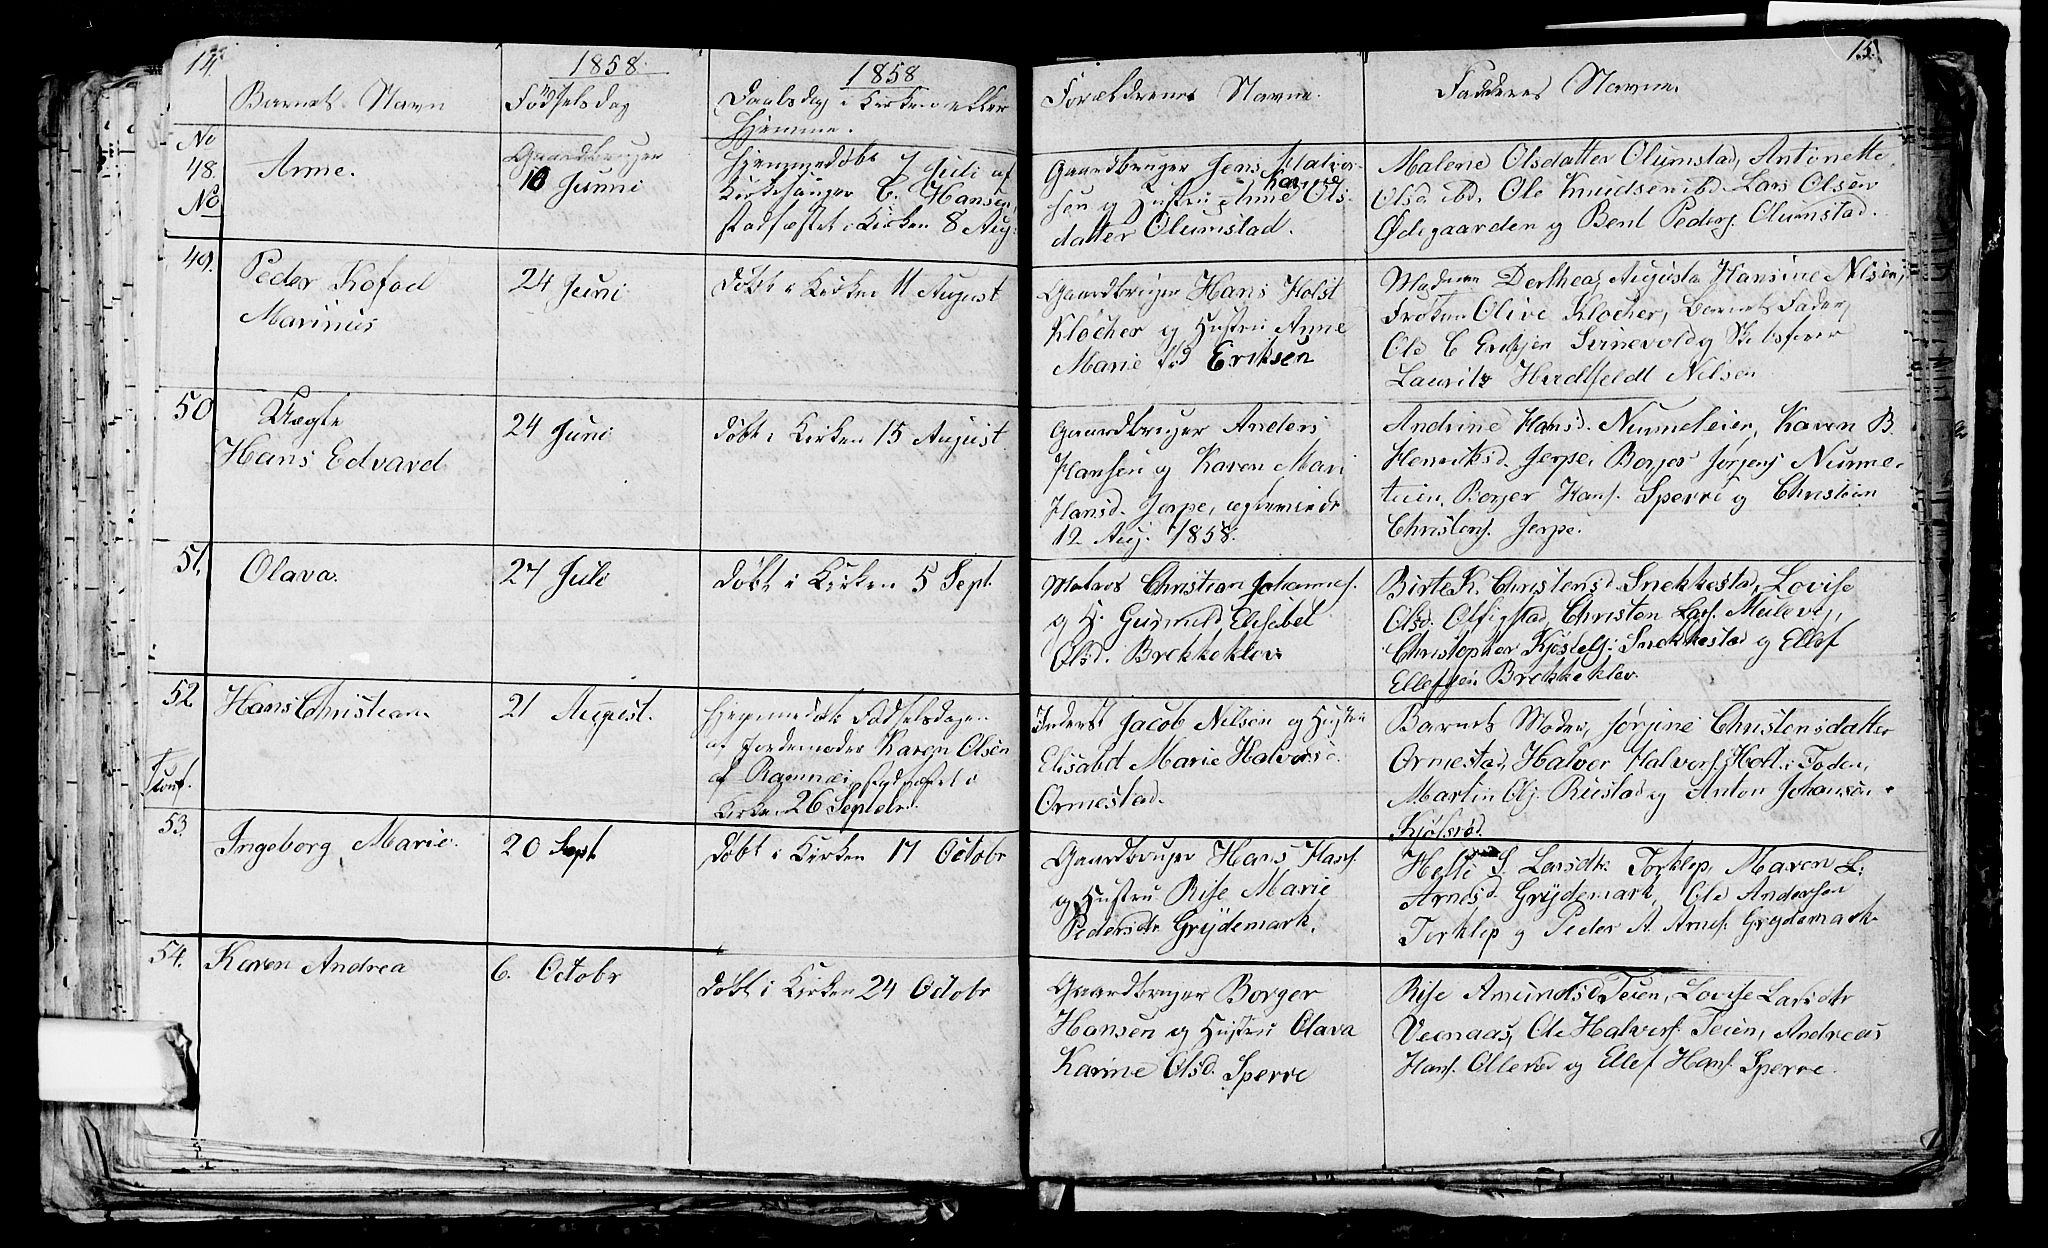 14.
1858.
1858
Barnets Navn
Fødselsdag
Daabsdag i Kirken eller
Hjemme.
No
48.
No
Anne.
Gaardbruger
10 Junni
Hjemmedøbt 7 Juli af
Kirkesanger C. Hansen,
stadfæstet i Kirken 8 Aug.
49.
Peder Kofod
Marinus
24 Juni
Døbt i Kirken 11 August
50
Uægte
Hans Edvard
24 Juni
Døbt i Kirken 15 August
51.
Olava.
27 Juli
Døbt i Kirken 5 Sept.
52
Hans Christian.
21 August.
Hjemmedøbt Fødselsdagen
af Jordemoder Karen Olsen
af Ramnæs, stadfæstet i
Kirken 26 Septebr.
53
Ingeborg Marie.
20 Sept
Døbt i Kirken 17 Octobr
54.
Karen Andrea
6. Octobr
Døbt i Kirken 24 Octobr
15.
Forældrenes Navne.
Faddernes Navne.
Gaardbruger Jens Halvor-
Karine
sen og Hustru Anne Ols-
datter Olumstad.
Malene Olsdatter Olumstad, Antonette
Olsd. ibd. Ole Knudsen ibd. Lars Olsen
Ødegaarden og Bent Peders. Olumstad.
Gaardbruger Hans Holst
Kløcher og Hustru Anne
Marie fød Eriksen
Madame Dorthea Augusta Hansine Nilsen,
Frøken Olive Kløcher, Barnets Fader,
Ole C Eriksen Svinevold og Skibsfører
Lauritz Nilsen
Gaardbruger Anders
Hansen og Karen Mari
Hansd. Jerpe, ægteviede
12 Aug. 1858.
Andrine Hansd. Nurmeteien, Karen B.
Henriksd. Jerpe, Borger Jørgens Nurme-
teien, Borger Hans. Sperre og Christian
Christens. Jerpe.
Matros Christian Johannes.
og H. Gunnild Elisabet
Olsd. Brekkeklev
Birte K. Christensd. Snekkestad, Lovise
Olsd. Olfigstad, Christen Lars. Mulevig,
Christopher Snekkestad og Ellef
Ellefsen Brekkeklev.
Inderst Jacob Nilsen og Hustru
Elisabet Marie Halvorsd.
Ormestad.
Barnets Moder, Jørgine Christensdatter
Ormestad, Halvor Halvors. Holt i Foden,
Martin Ols. Rustad og Anton Johansen
Kjølsrød.
Gaardbruger Hans Hans.
og Hustru Rise Marie
Pedersdr. Grydemark.
Helle S. Larsdtr. Torklep, Maren L.
Arnesd. Grydemark, Ole Andersen
Torklep og Peder A. Arnes. Grydemark
Gaardbruger Borger
Hansen og Hustru Olava
Karine Olsd. Sperre
Rise Amundsd. Teien, Lovise Larsdtr
Veenaas, Ole Halvors. Teien, Andreas
Hans. Ollerød og Ellef Hans. Sperre.